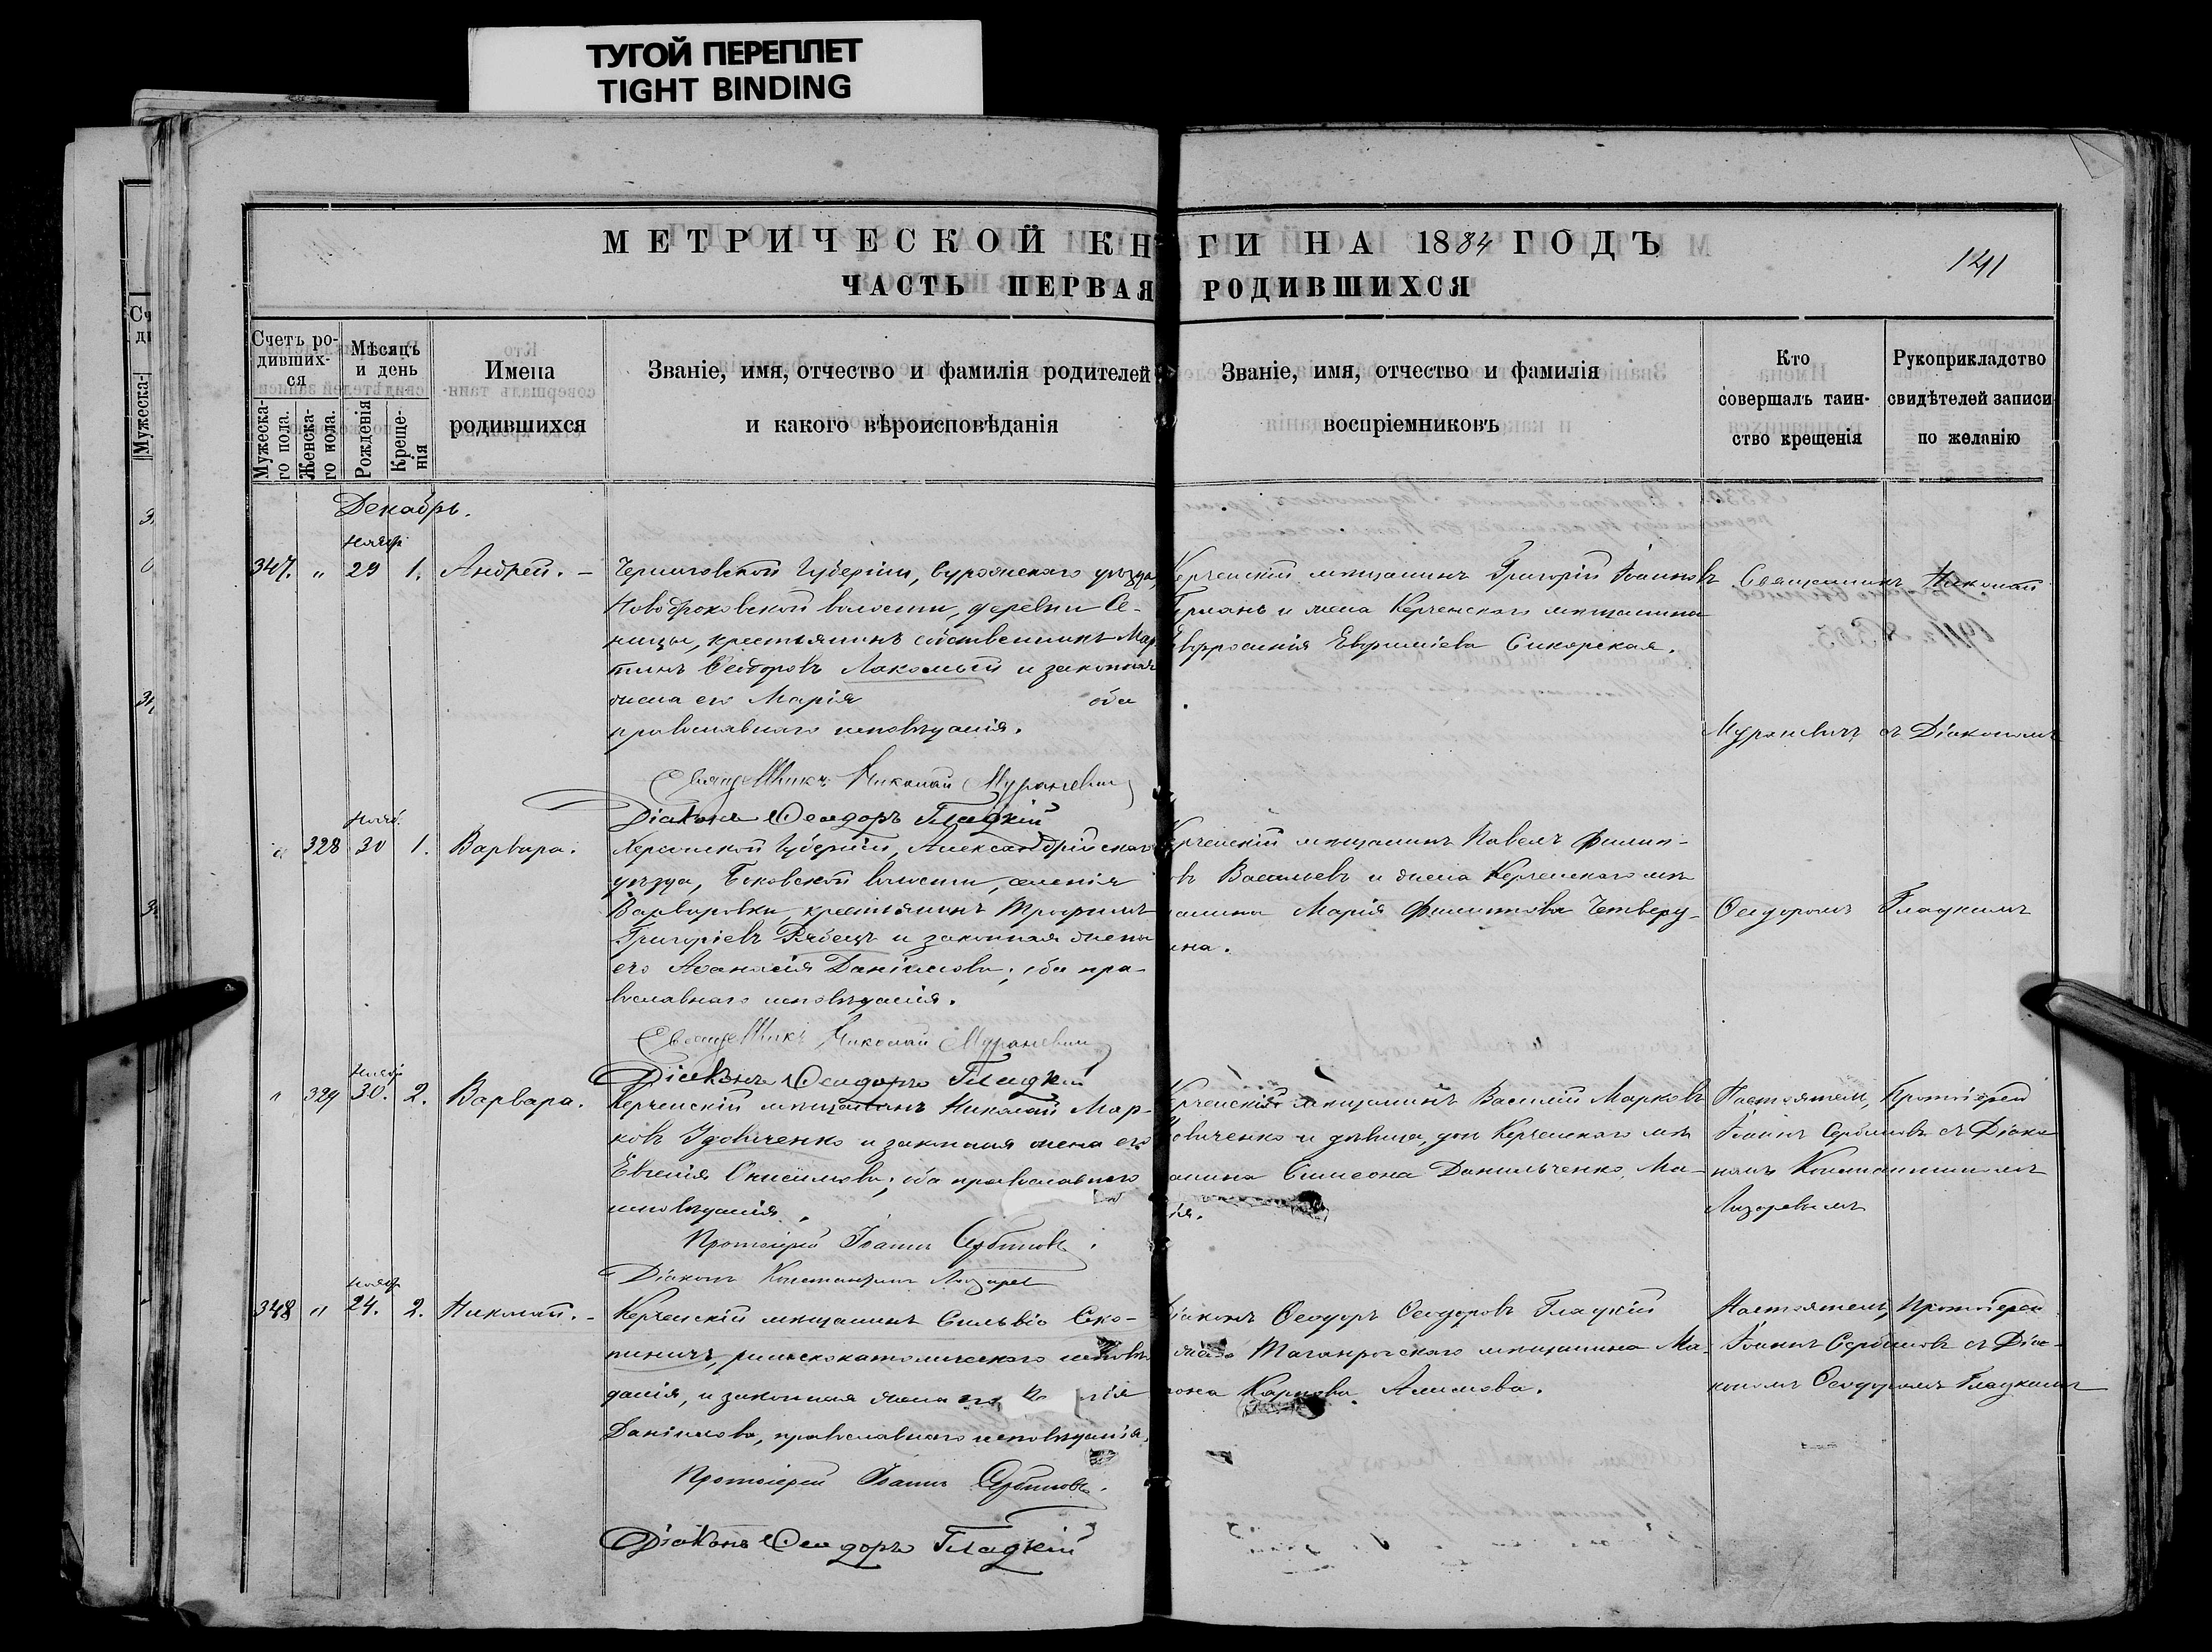 ТУГОЙ ПЕРЕПЛЕТ
TIGHT BINDING
МЕТРИЧЕСКОЙ КН ГИ НА 1884 ГОДЪ
141
ЧАСТЬ ПЕРВАЯ РОДИВШИХСЯ
Счетъ родившихся
Мужескаго пола.
Женскаго пола.
Мѣсяцъ и день
Рожденія
Крещенія
Имена родившихся
Званіе, имя, отчество и фамилія родителей
и какого вѣроисповѣданія
Званіе, имя, отчество и фамилія
воспріемниковъ
Кто
совершалъ таин-
ство крещенія
Рукоприкладство
свидѣтелей записи
по желанію
Декабрь.
Нояб.
347. " 29 1. Андрей. –
Черниговской Губерніи, уѣзда,
волости, деревни Се-
ницы, крестьянинъ собственникъ Мар
тинъ Ѳеодоровъ Лакомый и законная
жена его Марія оба
православнаго исповѣданія.
Священникъ Николай Мураневич
Діаконъ Ѳеодоръ Гладкій
Керченскій мѣщанинъ Григорій Іоанновъ
и жена Керченскаго мѣщанина
Евфросинія Евфиміева Сикорская.
Священникъ Николай
Мураневичъ съ Діакономъ
Ѳеодоромъ Гладкимъ
Нояб.
" 328 30 1. Варвара.
Херсонской Губерніи, Александрійскаго
уѣзда, волости, селенія
Варваровки, крестьянинъ Трофимъ
Григоріевъ Рябецъ и законная жена
его Аѳанасія Даніилова; оба пра-
вославнаго исповѣданія.
Священникъ Николай Мураневич
Діаконъ Ѳеодоръ Гладкій
рченскій мѣщанинъ Павелъ Филип-
овъ Васильевъ и жена Керченскаго мѣ
анина Марія Филиппова Четверу-
ина.
Нояб.
" 329 30. 2. Варвара.
Керченскій мѣщанинъ Николай Мар-
ковъ Удовиченко и законная жена его
Евгенія Онисимова; оба православнаго
исповѣданія.
Протоіерей Іоаннъ Сербиновъ.
Діаконъ Константинъ Лазарев
Керченскій мѣщанинъ Василій Марковъ
овиченко и дѣвица, дочь Керченскаго мѣ
анина Симеона Данильченко, Ма-
ія.
Настоятель, Протоіерей
Іоаннъ Сербиновъ съ Діако
номъ Константиномъ
Лазаревымъ
Нояб.
348 " 24. 2. Николай. –
Керченскій мѣщанинъ Сильвіо Ско-
пиничъ, римскокатолическаго исповѣ
данія, и законная жена его лія
Даніилова, православнаго исповѣданія.
Протоіерей Іоаннъ Сербиновъ.
Діаконъ Ѳеодоръ Гладкій
іаконъ Ѳеодоръ Ѳеодоровъ Гладкій
жена Таганрогскаго мѣщанина Ма-
Карпова Алимова.
Настоятель, Протоіерей
Іоаннъ Сербиновъ съ Діа-
кономъ Ѳеодоромъ Гладкимъ